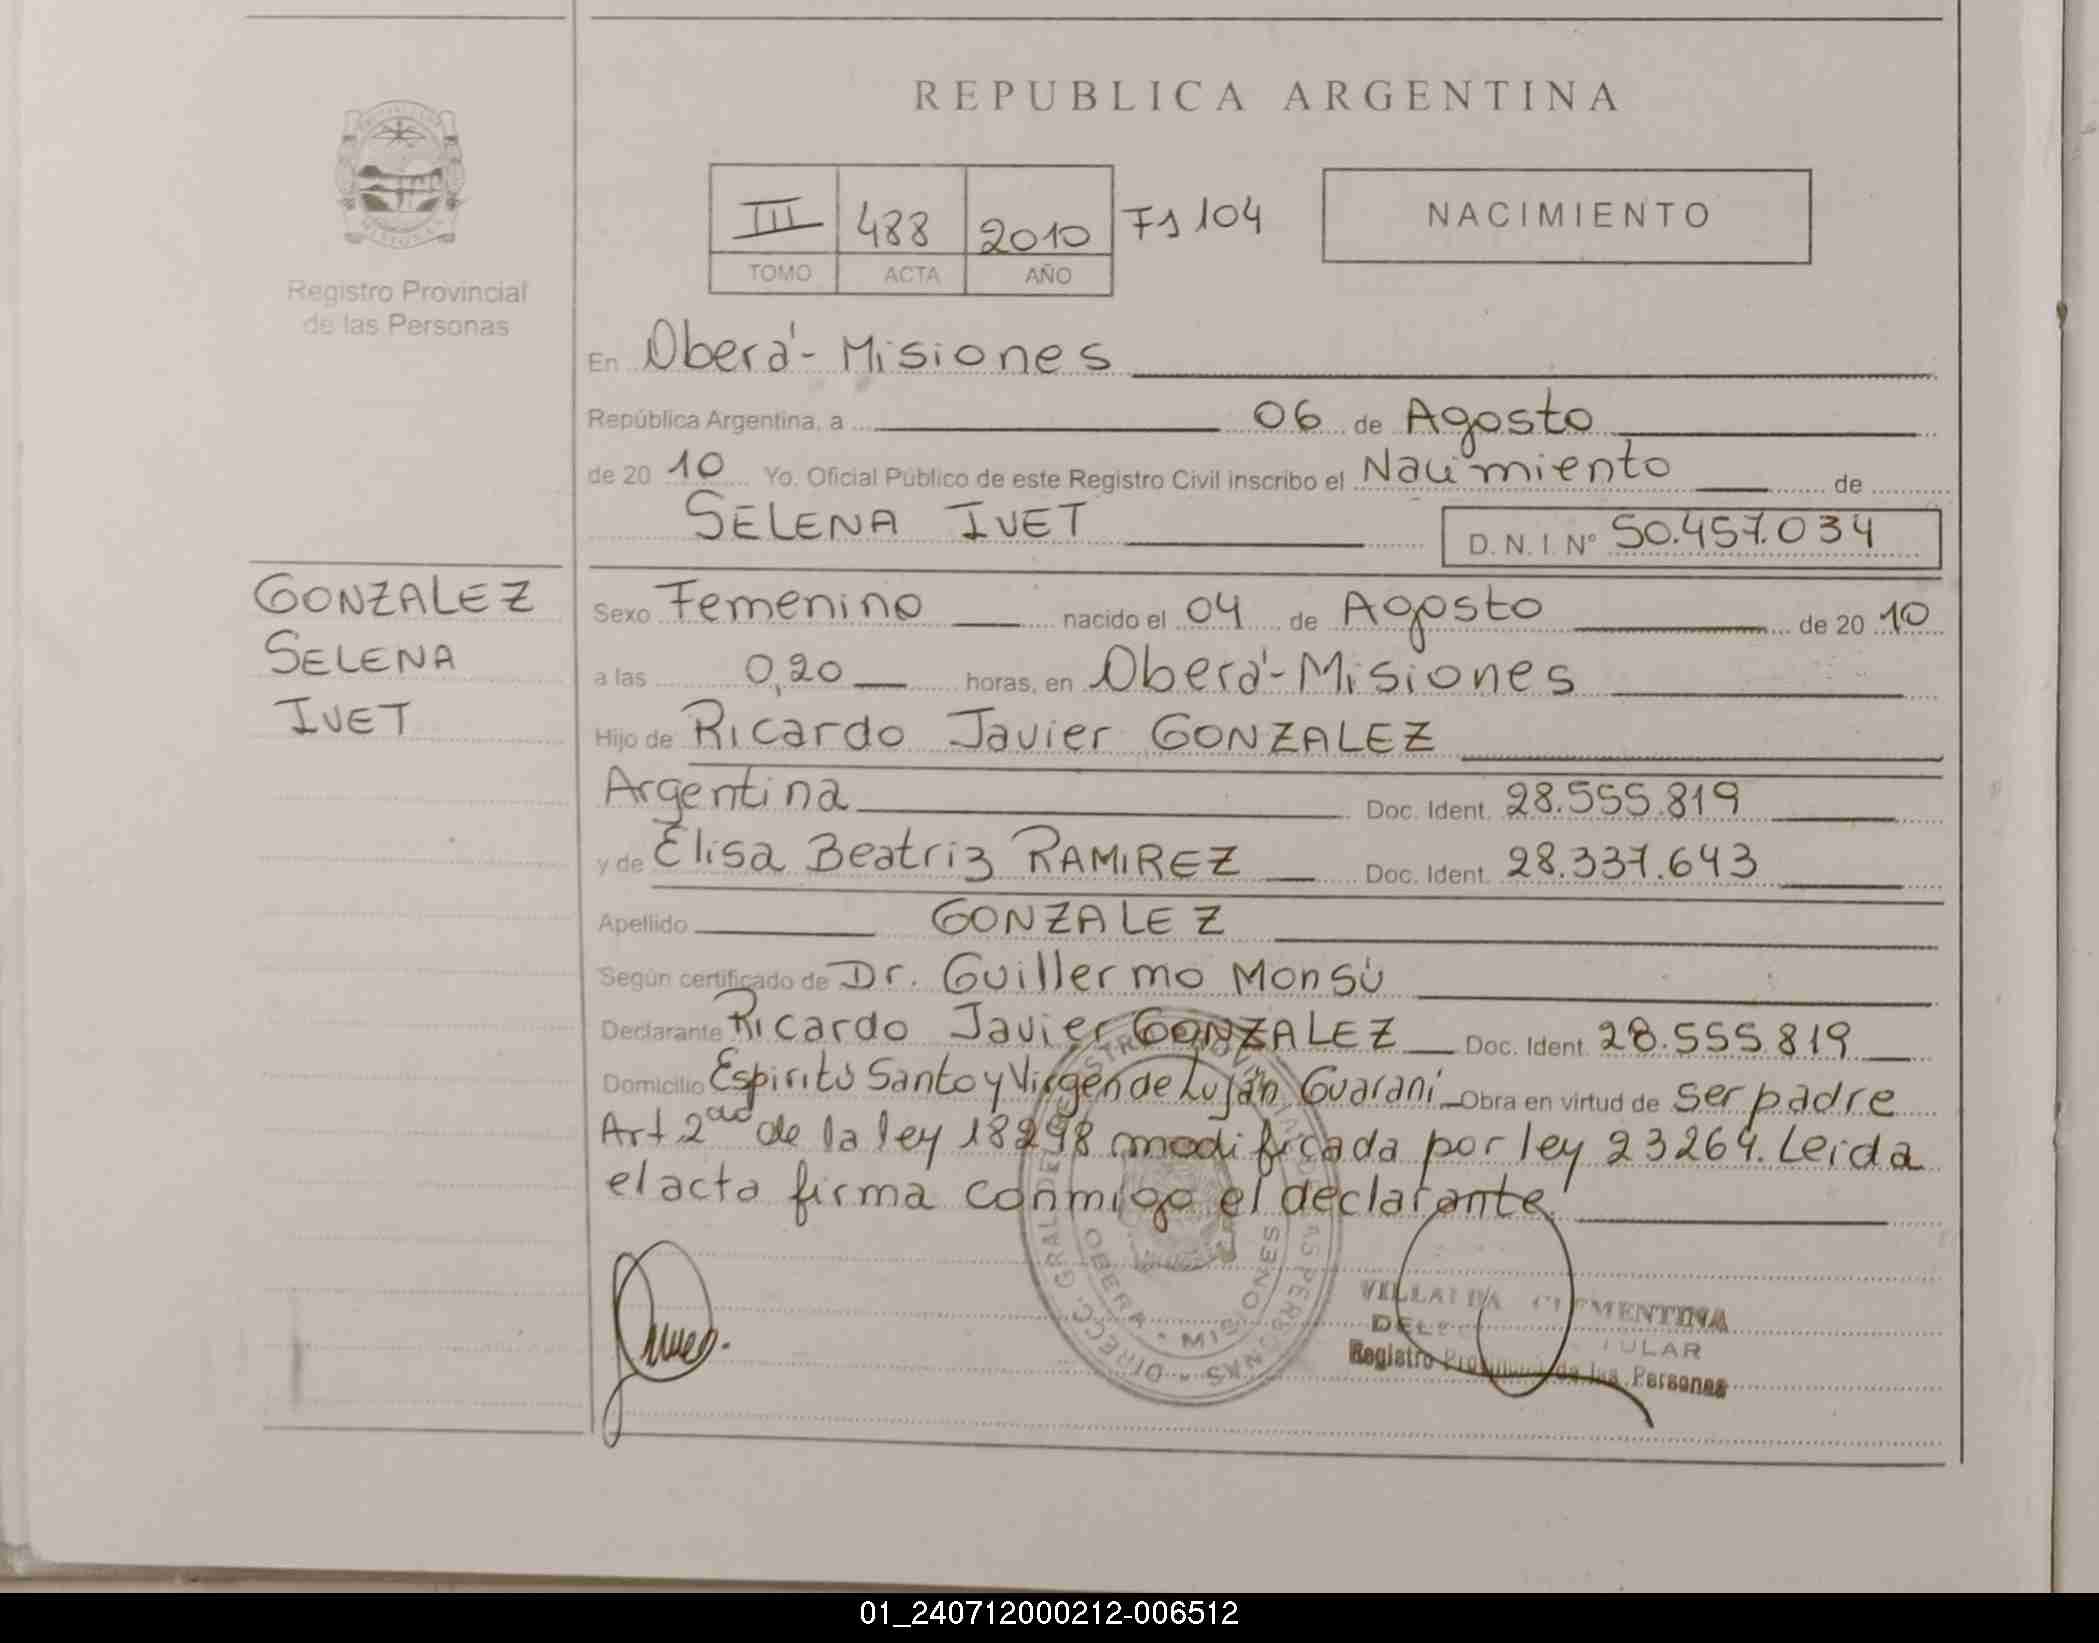 REPUBLICA ARGENTINA
III 488 2010 Fs 104
TOMO ACTA AÑO
NACIMIENTO
Registro Provincial
de las Personas
En Oberá - Misiones
República Argentina, a 06 de Agosto
de 20 10 Yo. Oficial Público de este Registro Civil inscribo el Nacimiento de
SELENA IVET D.N.I. Nº 50.457.034
GONZALEZ
SELENA
IVET
Sexo Femenino nacido el 04 de Agosto de 20 10
a las 0,20 horas, en Oberá - Misiones
Hijo de Ricardo Javier GONZALEZ
Argentina Doc. Ident. 28.555.819
y de Elisa Beatriz RAMIREZ Doc. Ident. 28.337.643
Apellido GONZALEZ
Según certificado de Dr. Guillermo Monsú
Declarante Ricardo Javier GONZALEZ Doc. Ident. 28.555.819
Domicilio Espíritu Santo y Virgen de Luján Guaraní Obra en virtud de ser padre
Art 2do de la ley 18298 modificada por ley 23264. Leida
el acta firma conmigo el declarante.
OBERA - MISIONES
VILLALBA CLEMENTINA
Registro Provincial de las Personas
01_240712000212-006512